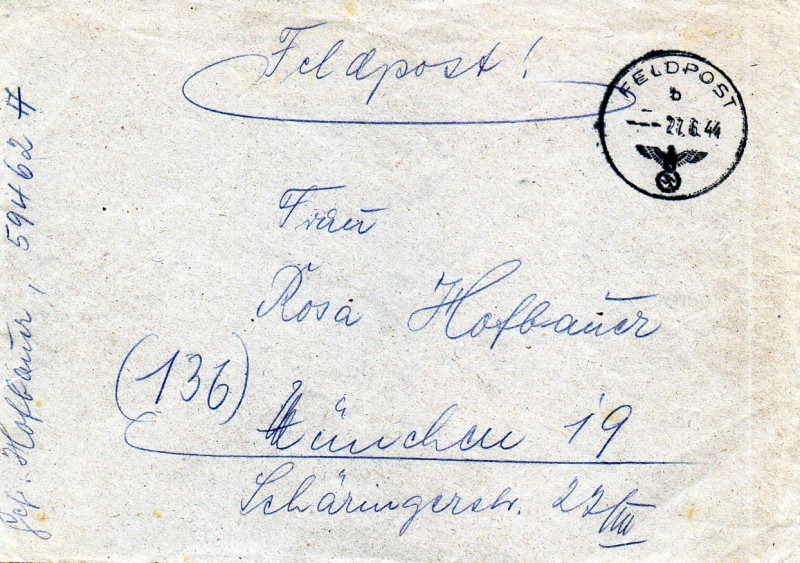 Feldpost!
FELDPOST
b
--- 27.6.44
Frau
Rosa Hofbauer
(13b)
München 19
Schäringerstr. 27/III
Hofbauer, 59462